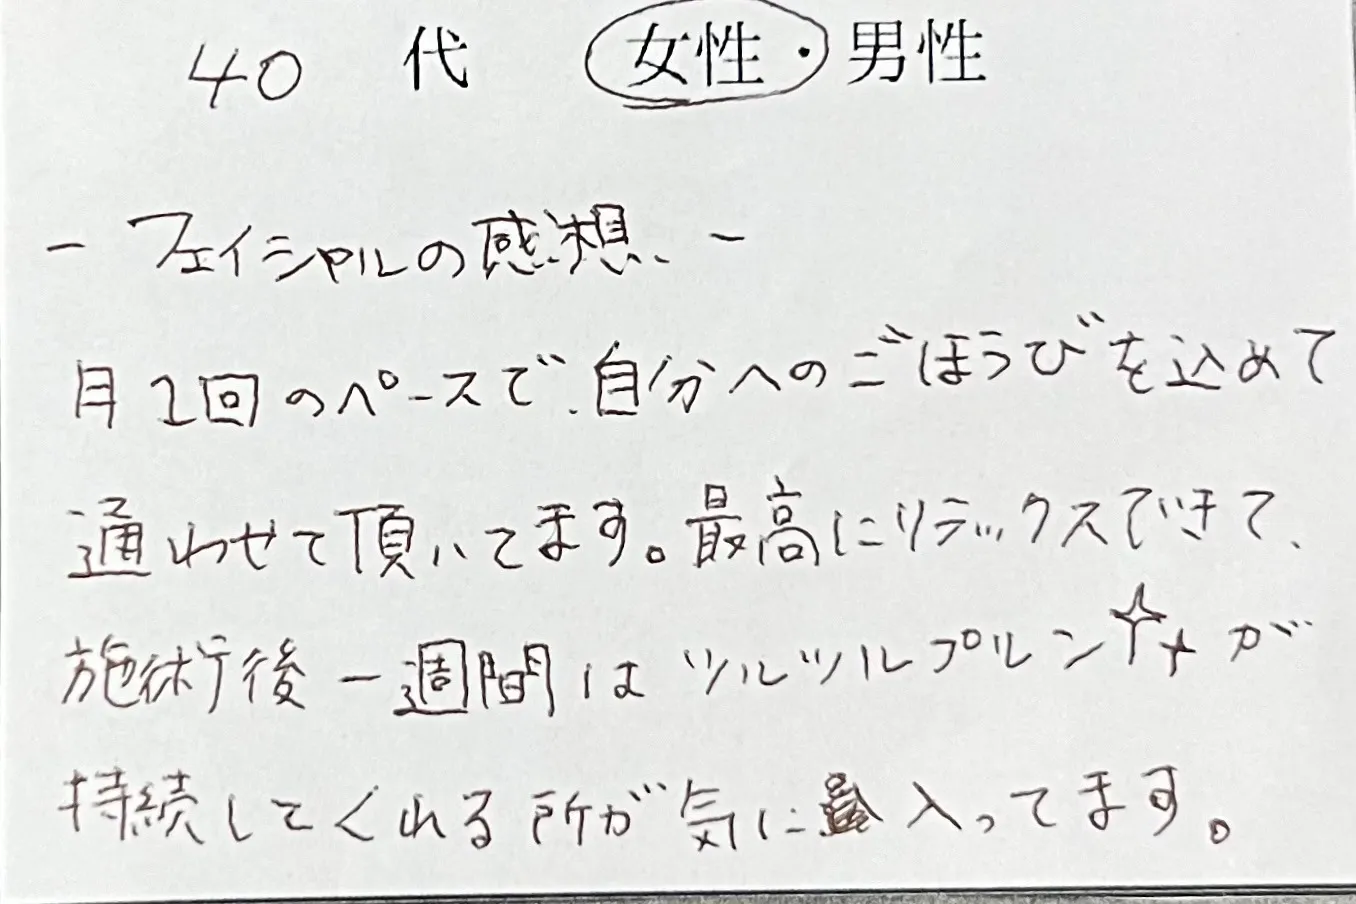 40 代 女性・男性
ー フェイシャルの感想 ー
月1回のペースで、自分へのごほうびを込めて
通わせて頂いてます。最高にリラックスできて、
施術後一週間はツルツルプルンが
持続してくれる所が気に入ってます。